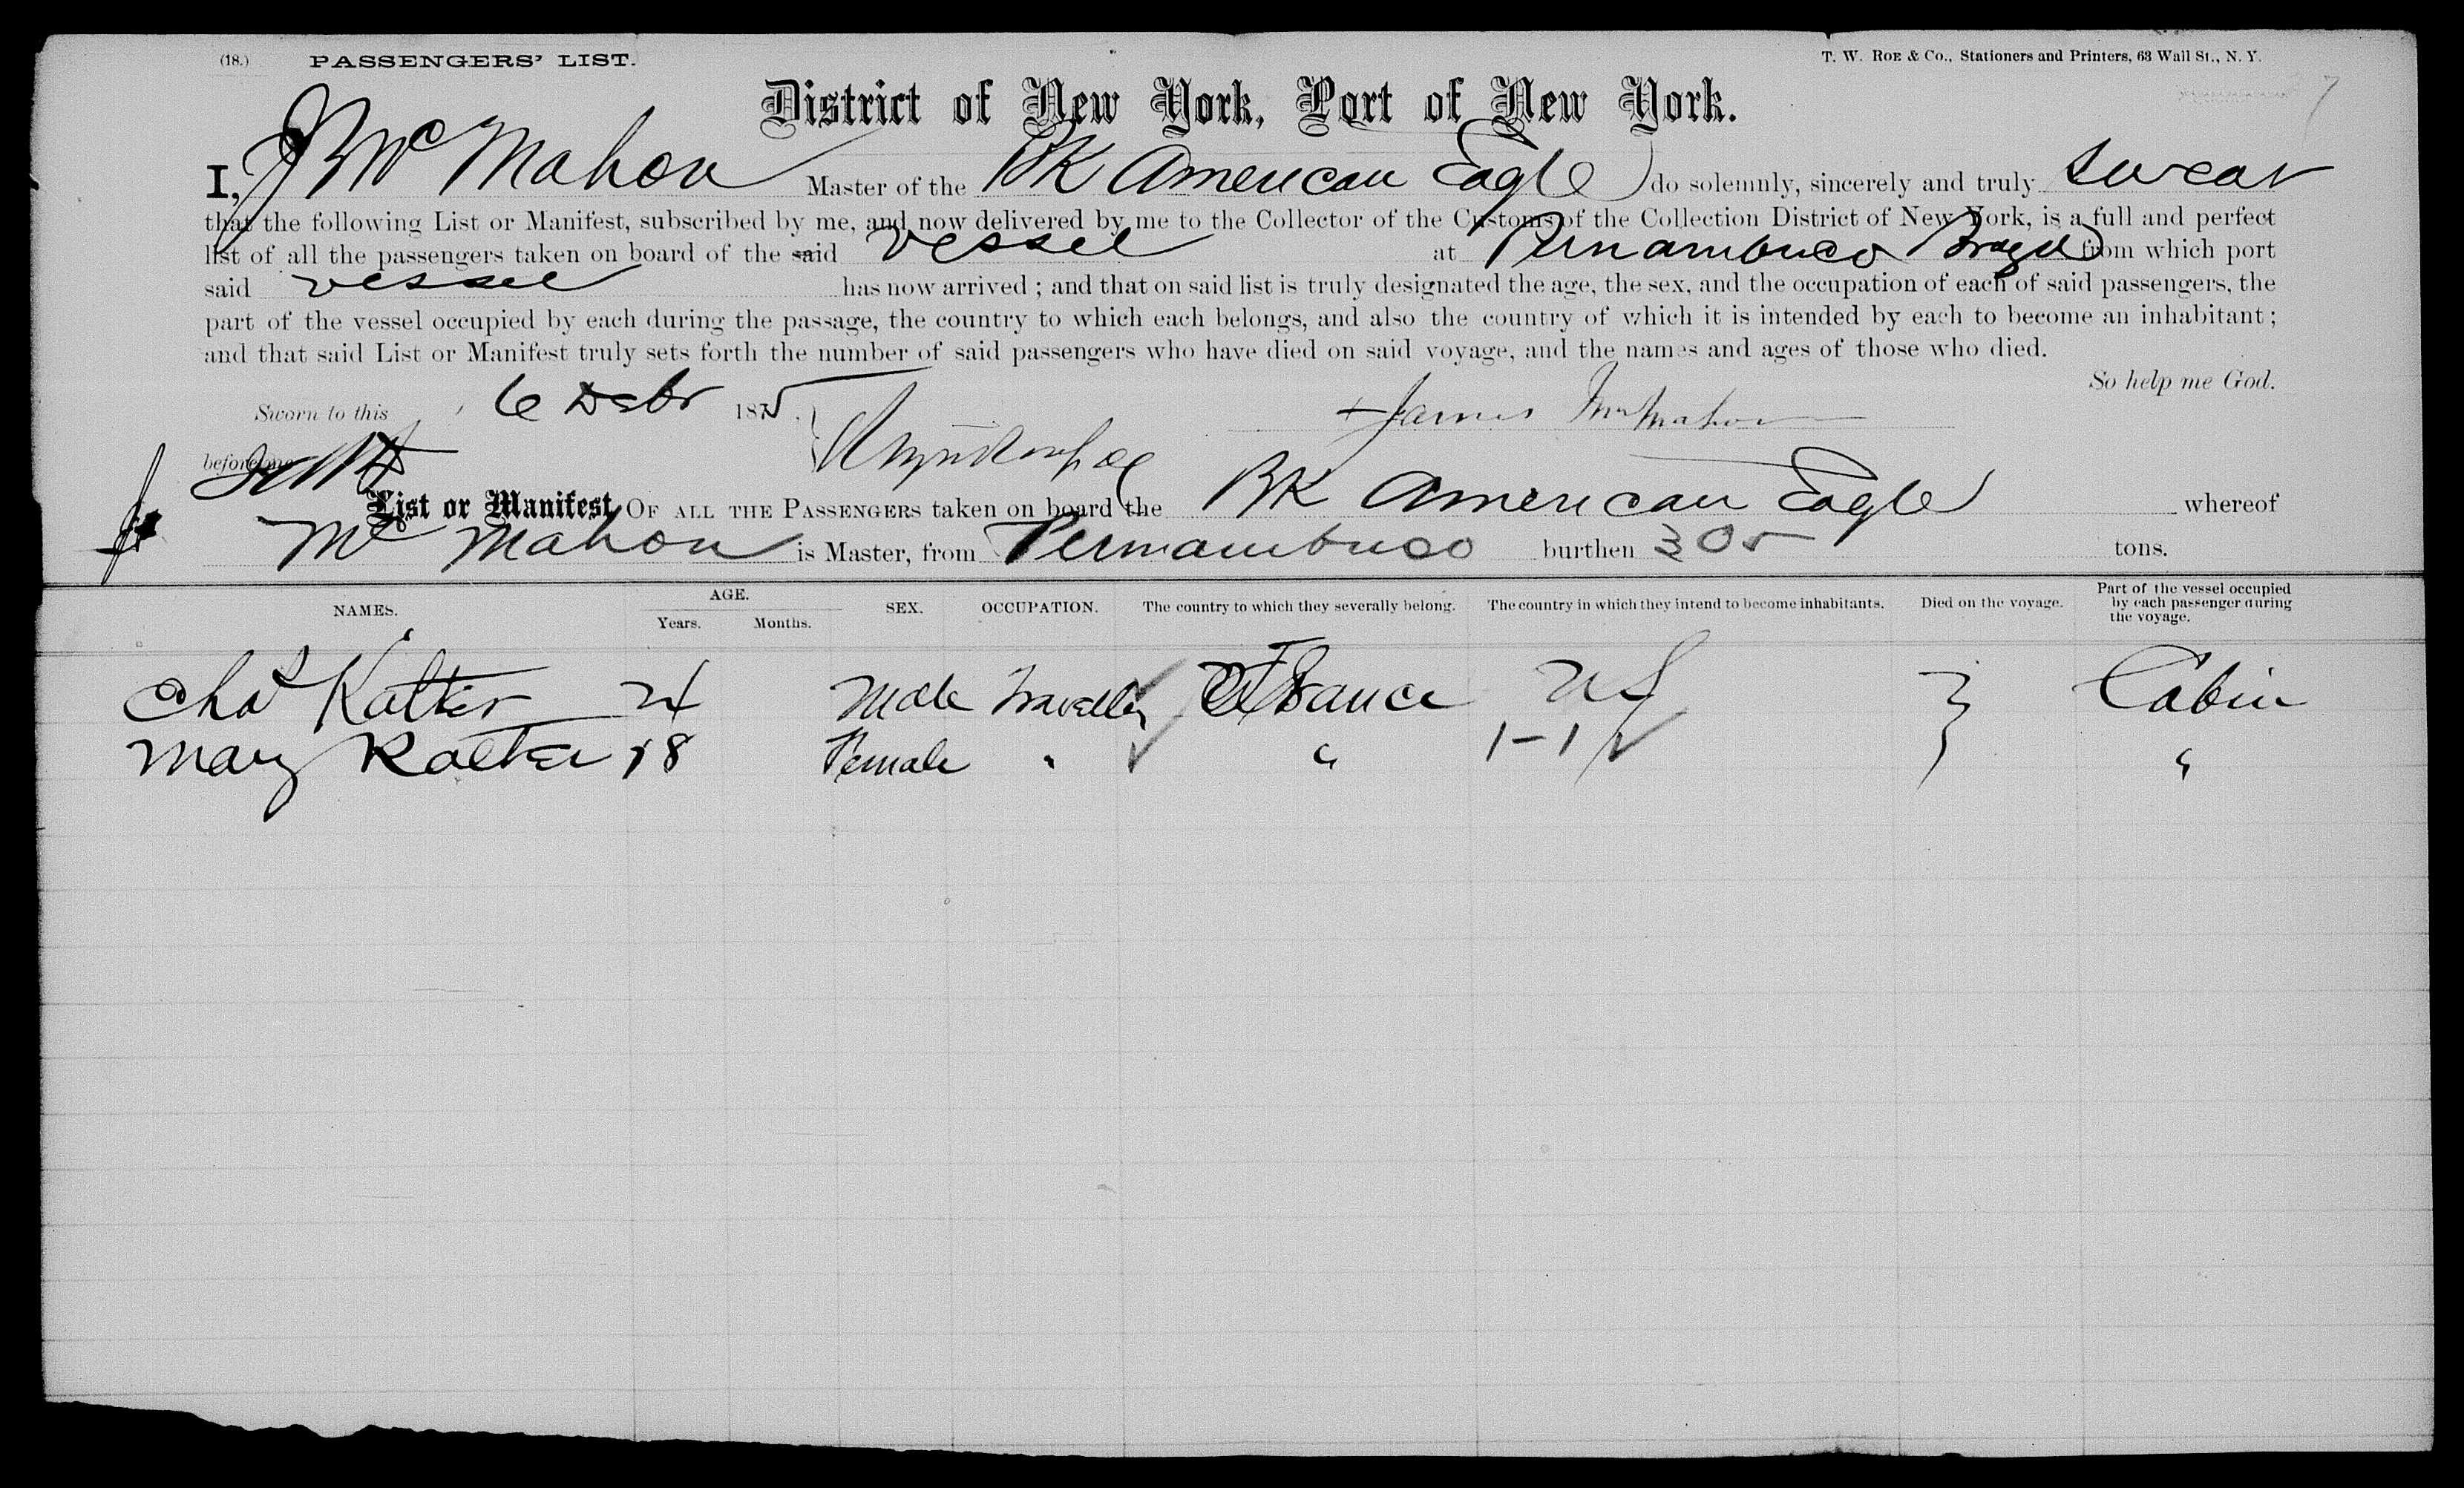 (18.) PASSENGERS' LIST. T. W. ROE & CO., Stationers and Printers, 63 Wall St., N. Y.
District of New York, Port of New York.
I, J Mc Mahon Master of the BK American Eagle do solemnly, sincerely and truly swear
that the following List or Manifest, subscribed by me, and now delivered by me to the Collector of the Customs of the Collection District of New York, is a full and perfect
list of all the passengers taken on board of the said vessel at Pernambuco Brazil from which port
said vessel has now arrived ; and that on said list is truly designated the age, the sex, and the occupation of each of said passengers, the
part of the vessel occupied by each during the passage, the country to which each belongs, and also the country of which it is intended by each to become an inhabitant ;
and that said List or Manifest truly sets forth the number of said passengers who have died on said voyage, and the names and ages of those who died.
So help me God.
Sworn to this 6 Decbr 1875. James McMahon
before me
List or Manifest OF ALL THE PASSENGERS taken on board the BK American Eagle whereof
Mc Mahon is Master, from Pernambuco burthen 305 tons.
NAMES. AGE. Years. Months. SEX. OCCUPATION. The country to which they severally belong. The country in which they intend to become inhabitants. Died on the voyage. Part of the vessel occupied by each passenger during the voyage.
Chas Kalter 24 Male France US Cabin
Mary Kalter 18 Female " " 1-1 "